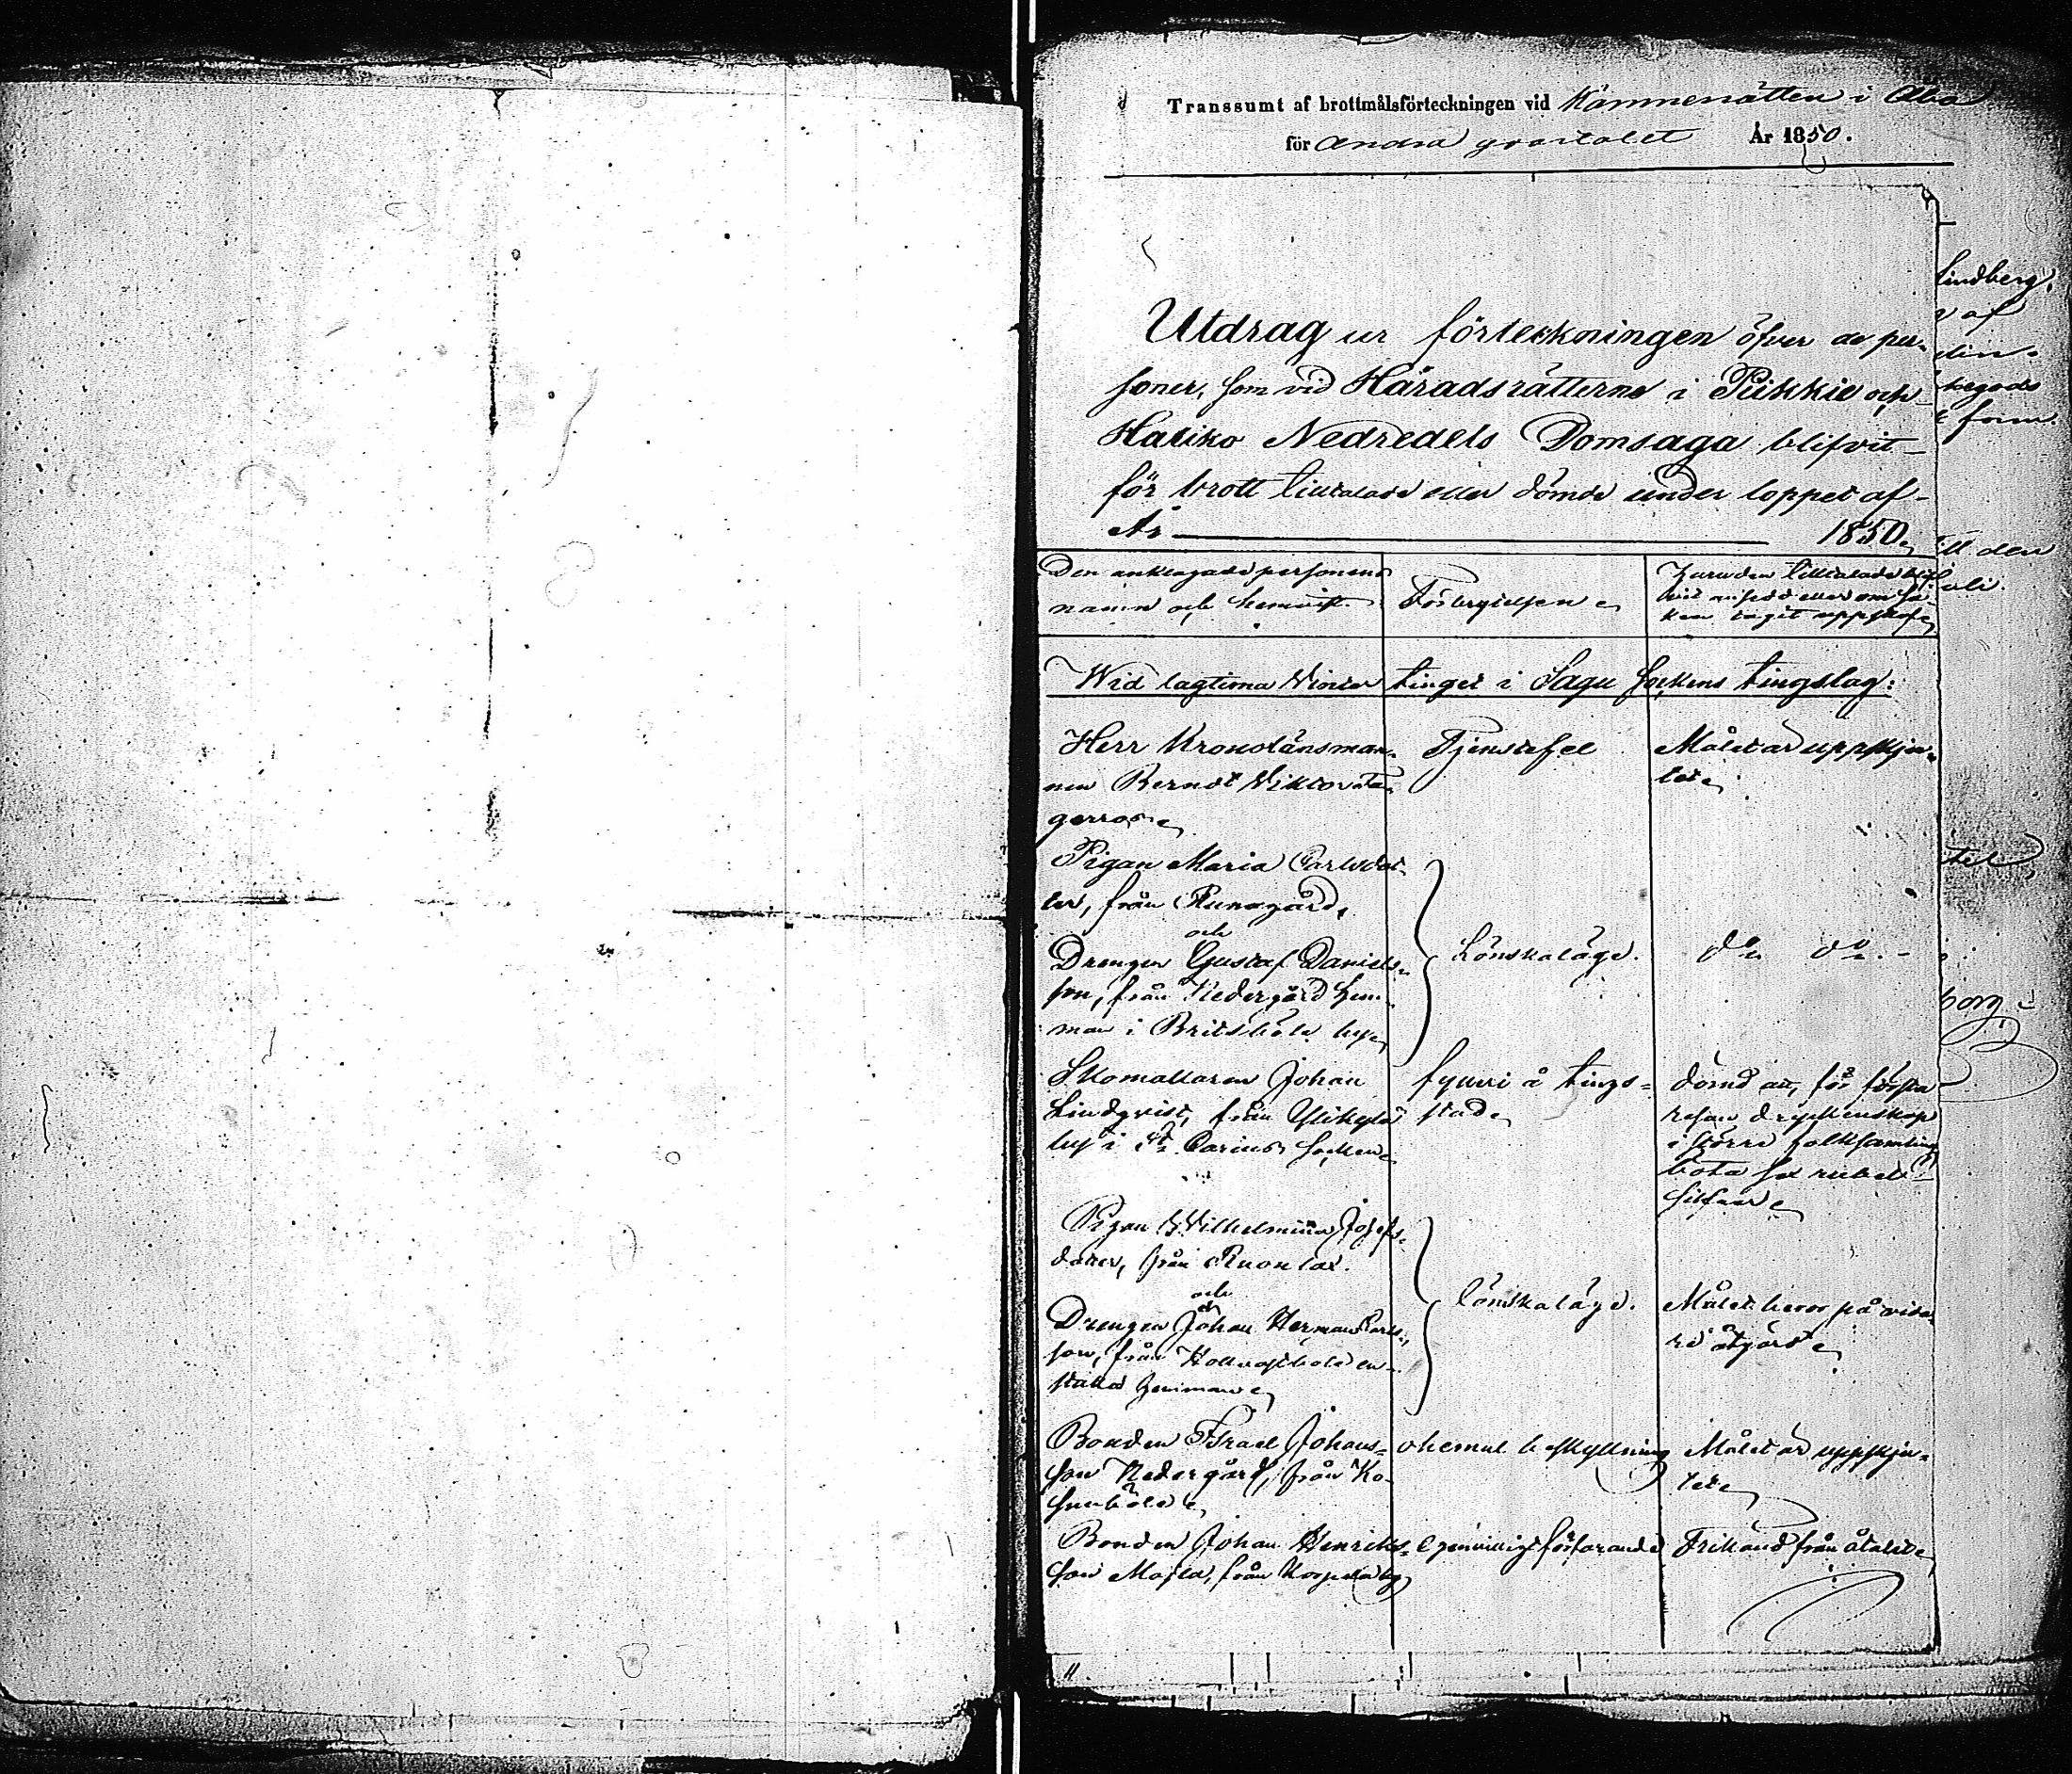 Transsumt af brottmålsförteckningen vid Kämnersrätten i Åbo
för Andra qvartalet År 1850.
Utdrag ur förteckningen öfver de per-
soner, som vid Häradsrätterne i Pikkie och
Haliko Nedredels Domsaga blifvit
för brott tilltalade eller dömde under loppet af
År 1850.
Den anklagade personens
namn och hemvist.
Förbrytelsen
Huruden tilltalade blif-
vit ansedd eller om sa-
ken tagit uppskof
Wid lagtima Vinter tinget i Sagu Sockens tingslag:
Herr Kronolänsman-
nen Berndt Viktor
Tjenstefel
Målet är uppskju-
tet
Pigan Maria Carlsdot-
ter, från
och
Drengen Gustaf Daniels-
son, från Nedergård hem-
man i Britsböle by
Lönskaläge.
do do
Skomakaren Johan
Lindqvist, från
by i St Carins Socken
fylleri å tings-
stad
dömd att, för första
resan dryckenskap
i större folksamling
böta sex rubel
silfver
Pigan Wilhelmina Josefs-
dotter, från Ruonlax.
och
Drengen Johan Herman Carls-
son, från
hemman
lönskaläge.
Målet beror på vida-
re åtgärd
Bonden Israel Johans-
son Nedergård, från Ko-
ohemul beskyllning
Målet är uppskju-
tet
Bonden Johan Henriks-
son från Korpela by
Egenvilligt förfarande
Frikänd från åtalet
lindberg.
af
till den
borg